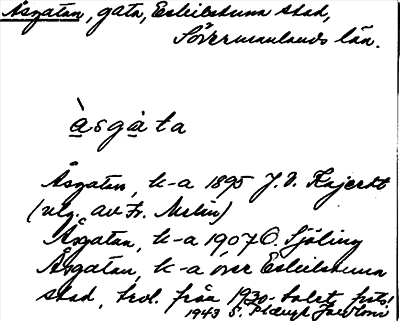 Åsgatan, gata, Eskilstuna stad,
Södermanlands län.
àsgàta
Åsgatan, k-a 1895 J. V.
(utg. av Fr. Melin)
Åsgatan, k-a 1907 O. Sjöling
Åsgatan, k-a över Eskilstuna
stad, trol. från 1930-talet
1943 S.